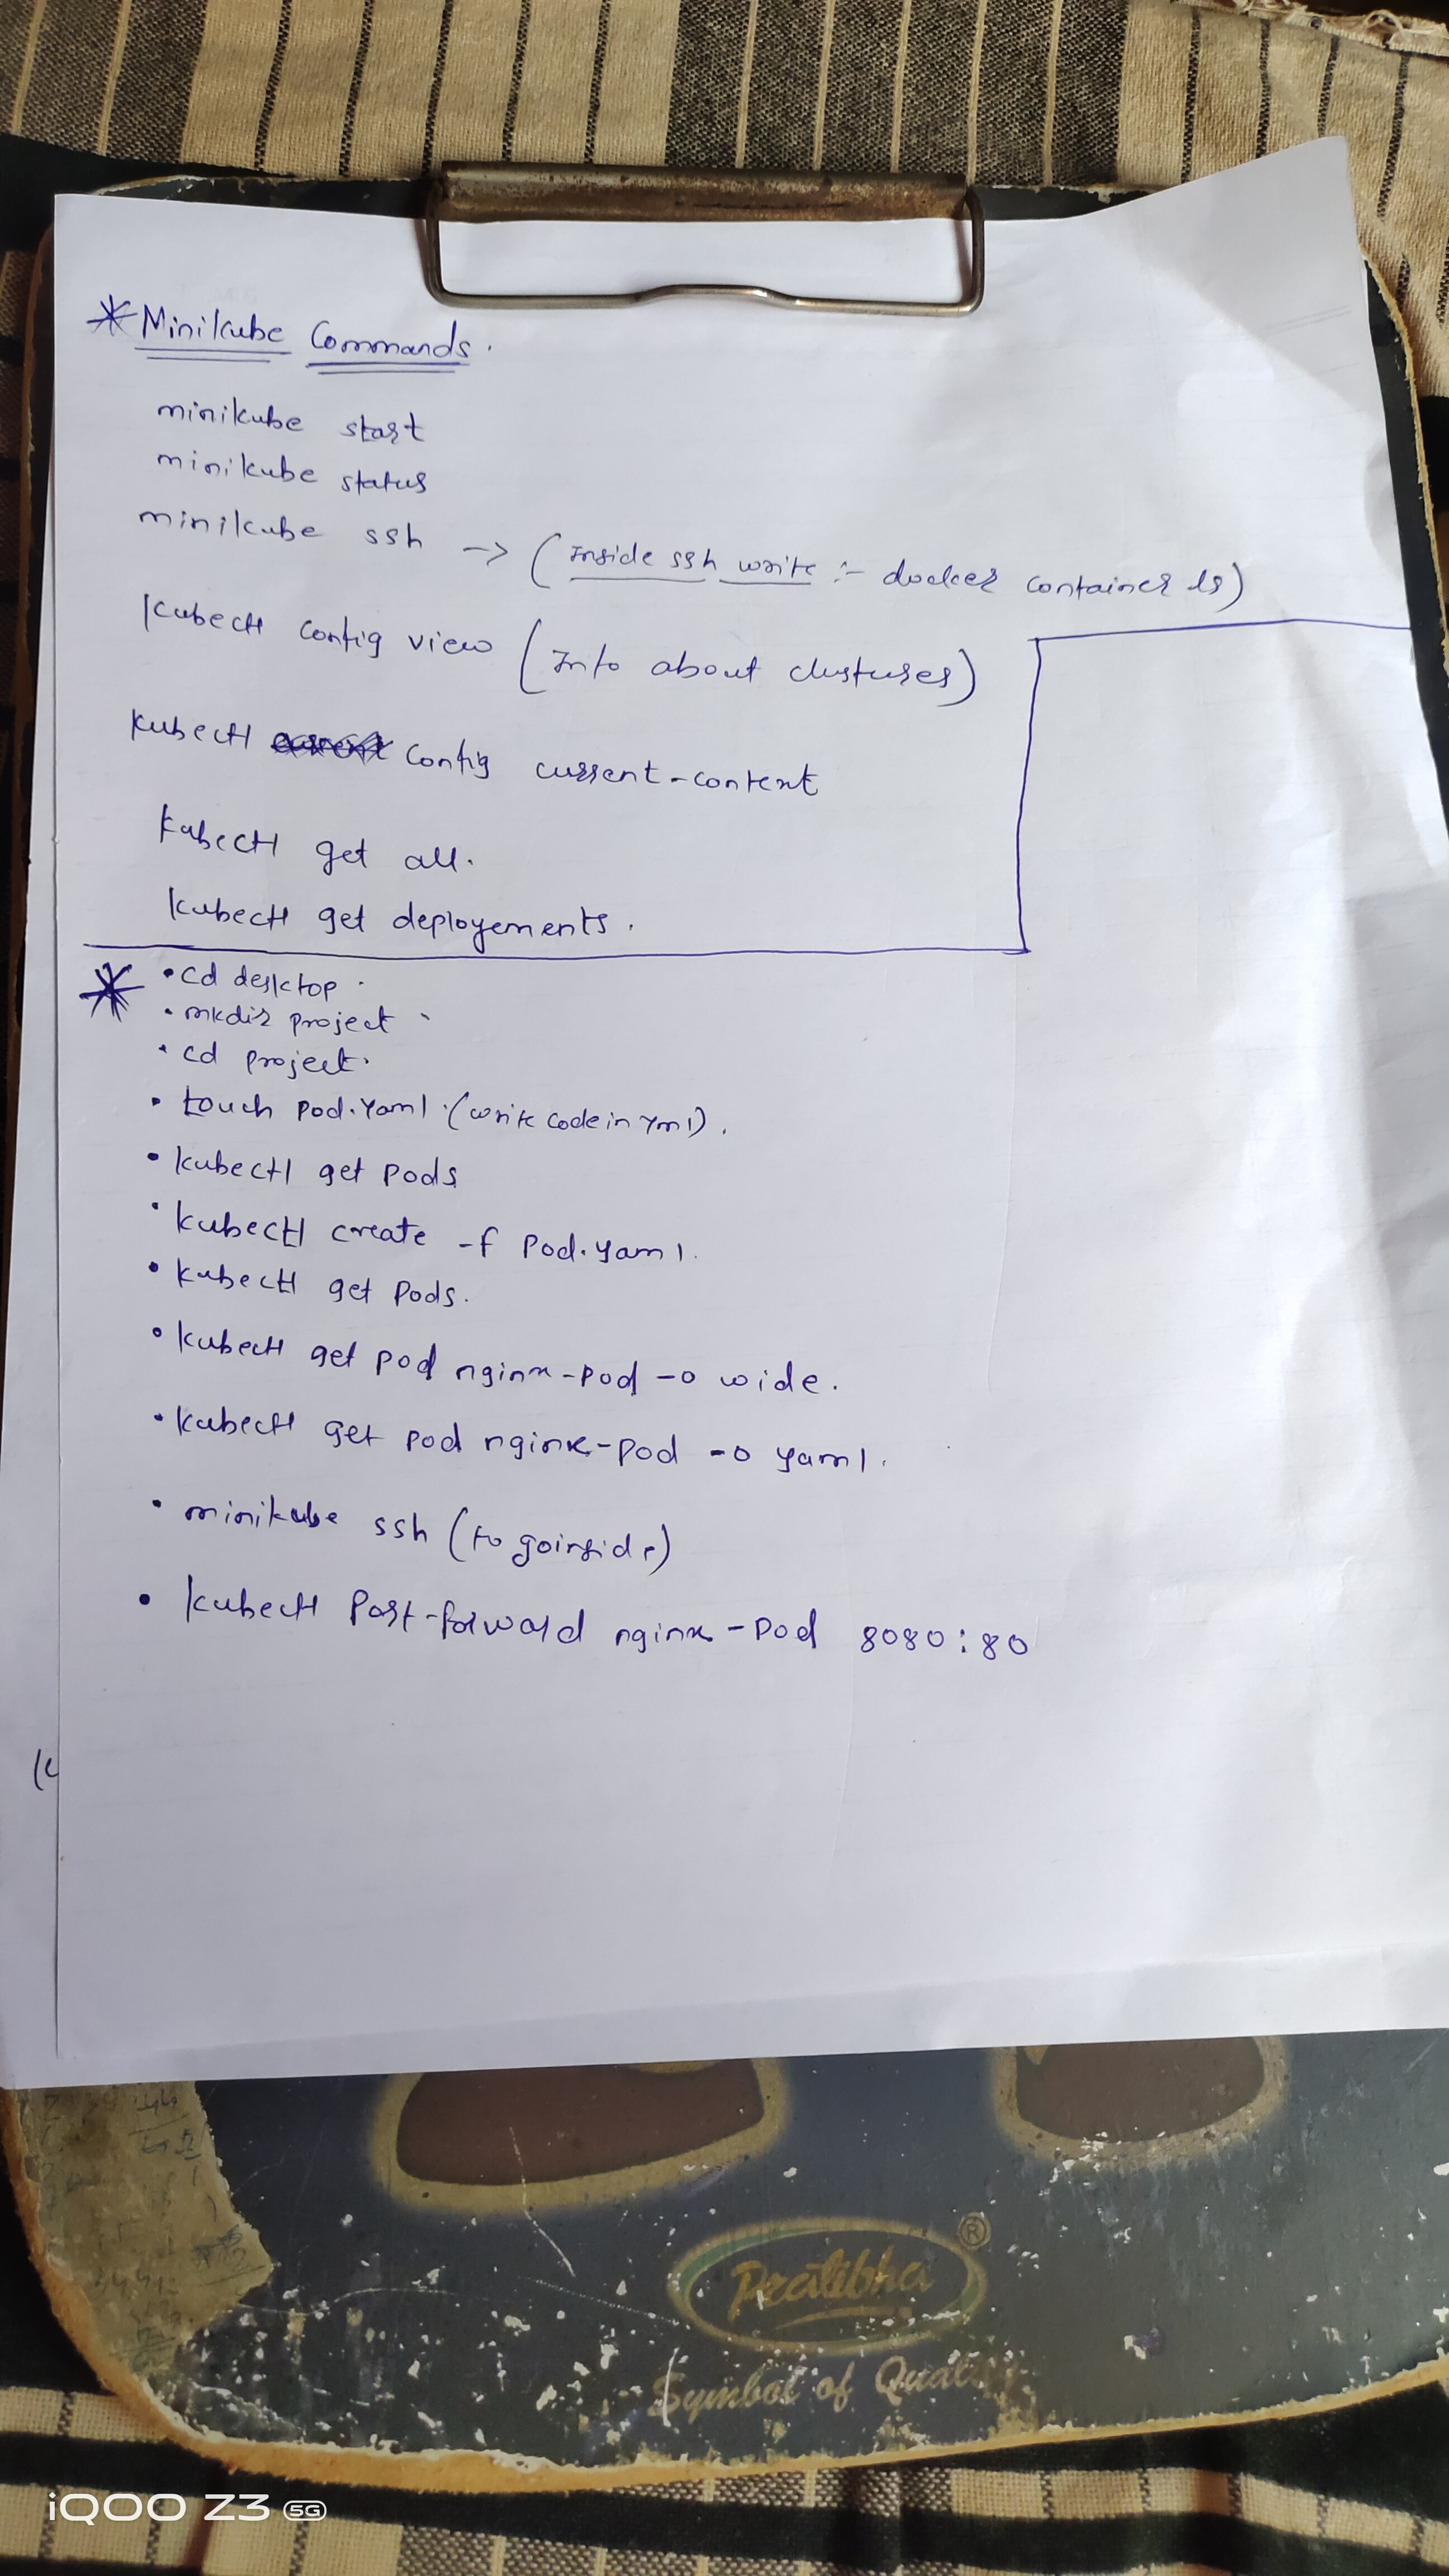 * Minikube Commands.
minikube start
minikube status
minikube ssh -> (Inside ssh write :- docker container ls)
kubectl config view (Info about clustures)
kubectl config current-context
kubectl get all.
kubectl get deployements.
* • cd desktop.
• mkdir project.
• cd project.
• touch pod.yaml. (write code in yml).
• kubectl get pods
• kubectl create -f pod.yaml.
• kubectl get pods.
• kubectl get pod nginx-pod -o wide.
• kubectl get pod nginx-pod -o yaml.
• minikube ssh (to goinside)
• kubectl Port-forward nginx-pod 8080:80
Pratibha ®
Symbol of
iQOO Z3 5G